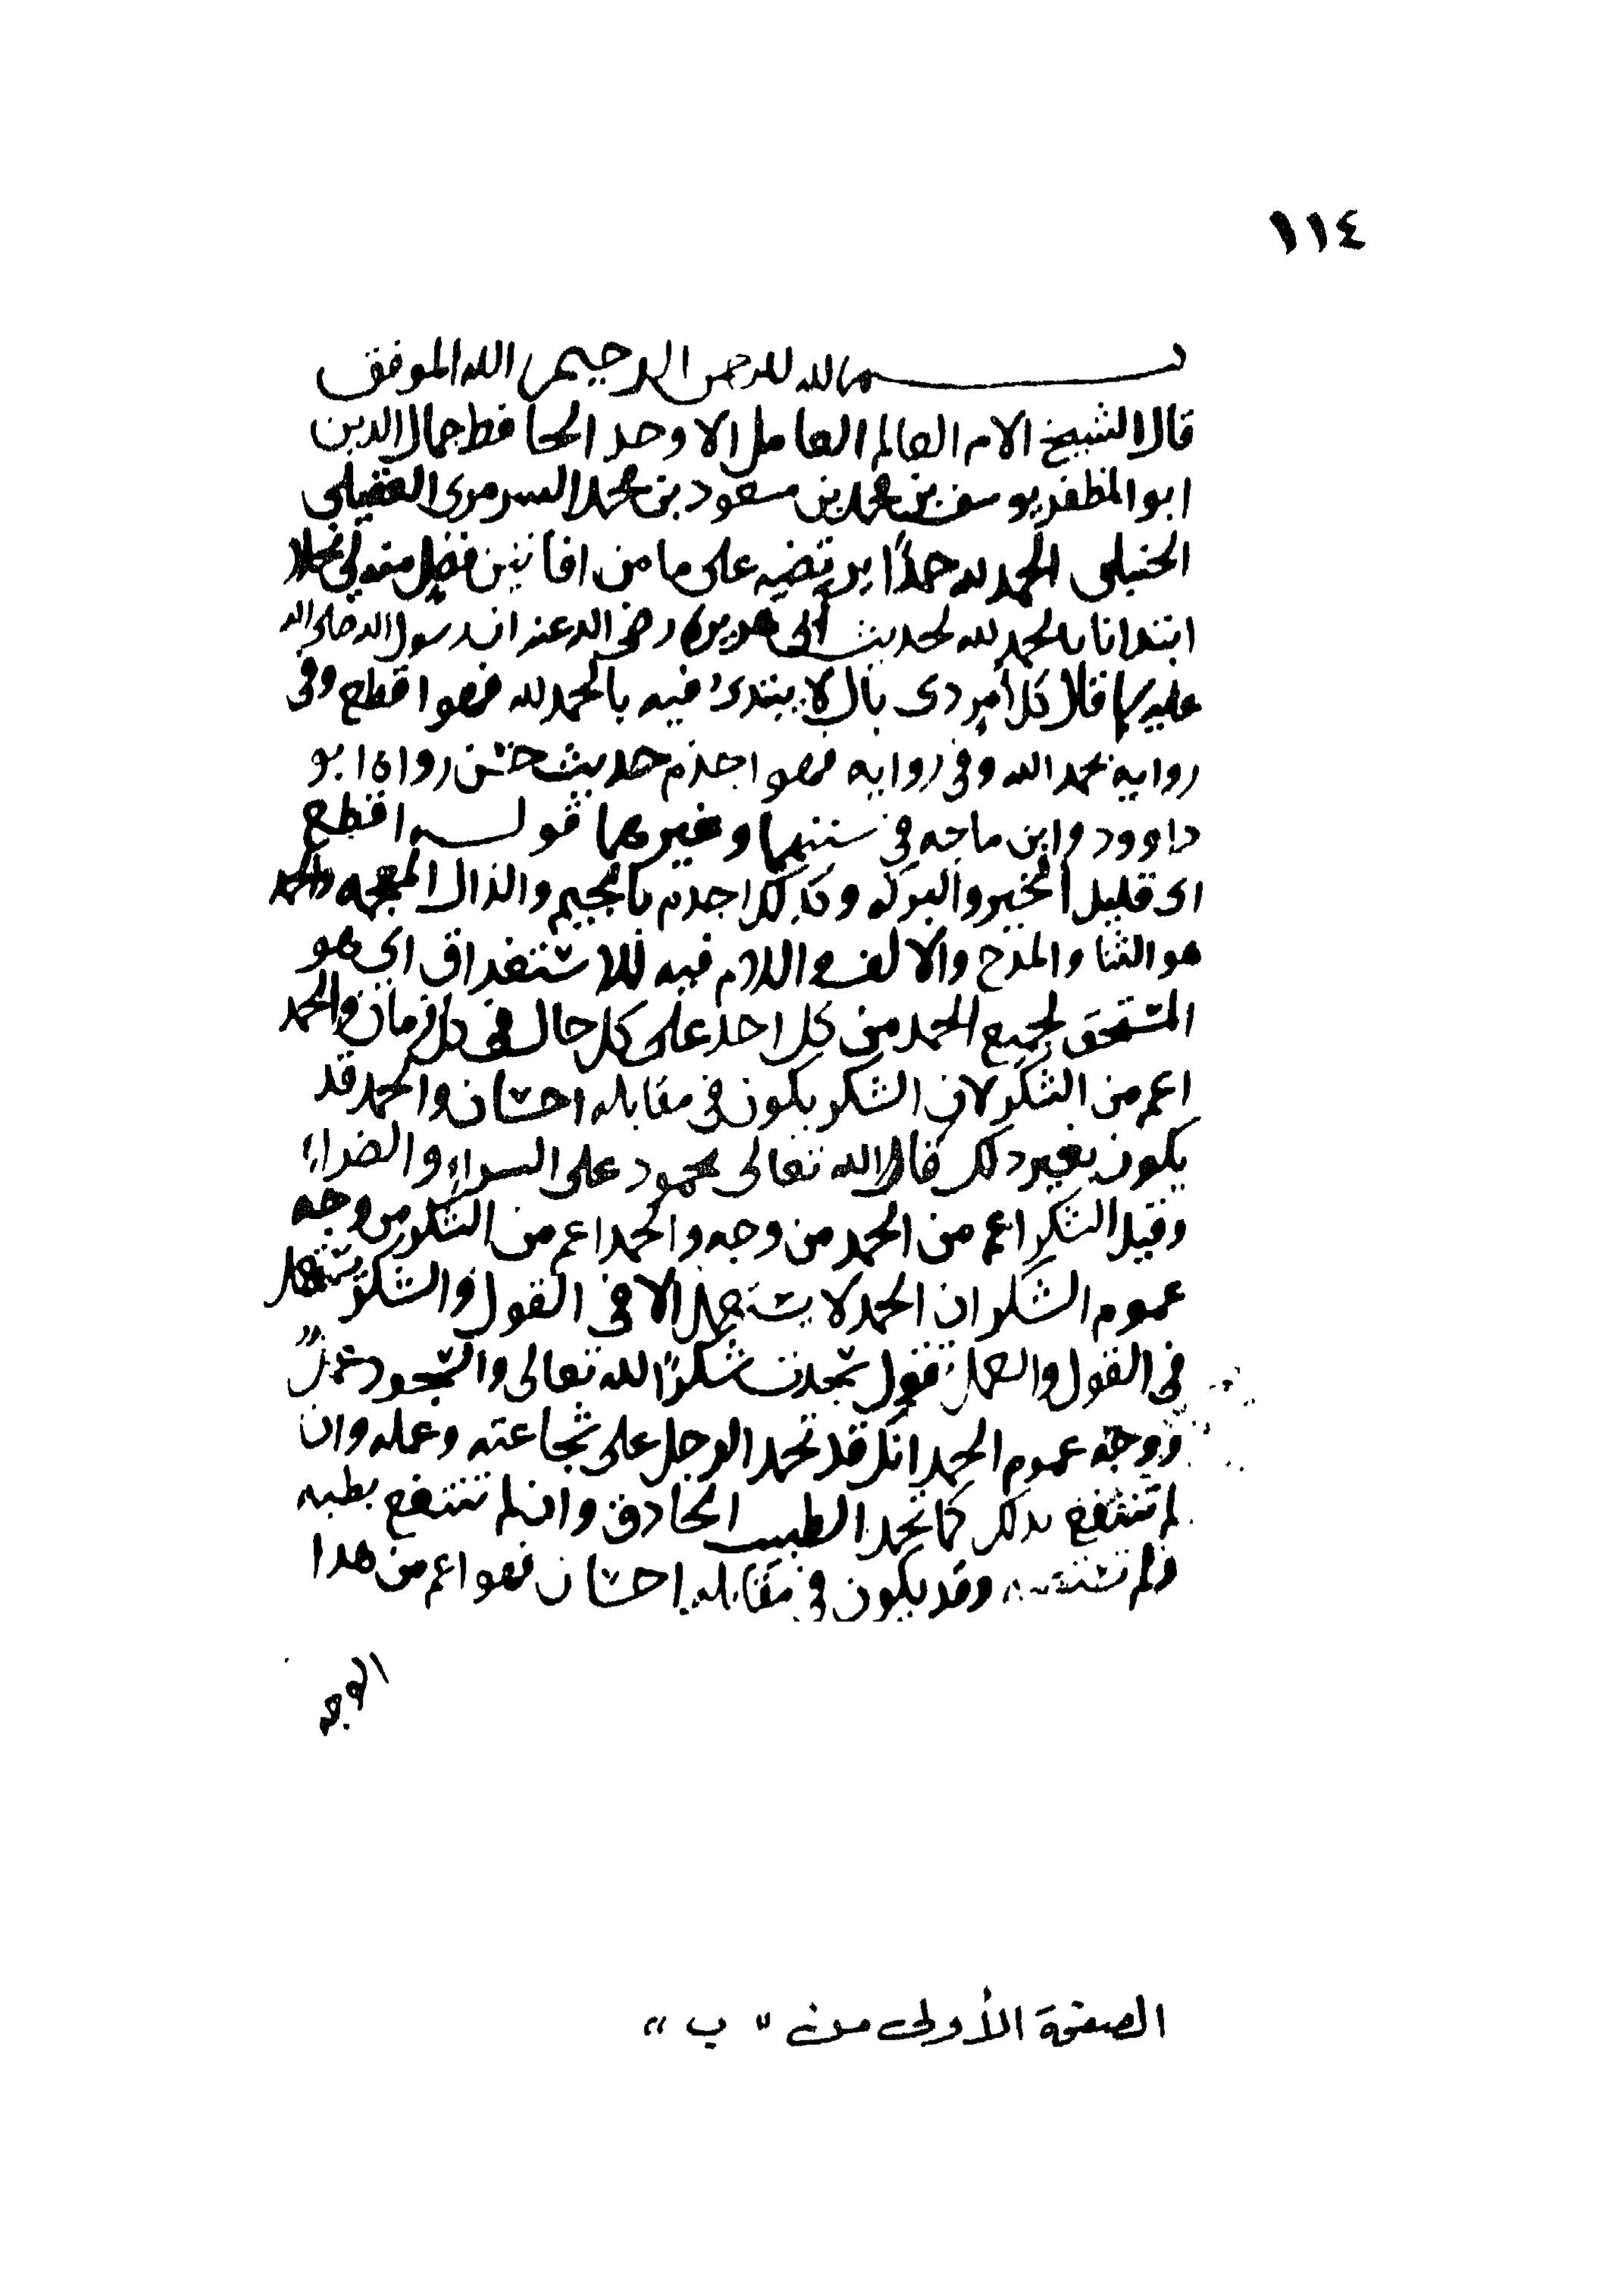 ١١٤
بسم الله الرحمن الرحيم الله الموفق
قال الشيخ الامام العالم العامل الاوحد الحافظ جمال الدين
ابو المظفر يوسف بن محمد بن مسعود بن محمد السرمري العقيلي
الحنبلي الحمد لله حمدًا يرتضيه على ما من افانين فضل
ابتدانا بالحمد لله لحديث أبي هريرة رضي الله عنه ان رسول الله صلى الله
عليه قال كل أمر دى بال لا يبتدئ فيه بالحمد لله فهو اقطع وفى
رواية بحمد الله وفى رواية فهو اجذم حديث حسن رواه ابو
داوود وابن ماجه في سننهما وغيرهما قوله اقطع
اى قليل الخير والبركه وكذلك اجذم بالجيم والذال المعجمه والحمد
هو الثنا والمدح والالف واللام فيه للاستغراق اي هو
المستحق لجميع الحمد من كل احد على كل حال في كل زمان والحمد
اعم من الشكر لان الشكر يكون في مقابله احسان والحمد قد
يكون بغير دلك قال الله تعالى محمود على السراء والضراء
وقيل الشكر اعم من الحمد من وجه والحمد اعم من الشكر من وجه
عموم الشكر ان الحمد لا يستعمل الا في القول والشكر يستعمل
في القول والعمل تقول سجدت شكرًا لله تعالى والسجود عمل
ووجه عموم الحمد انك قد تحمد الرجل على شجاعته وعمله وان
لم تنتفع بدلك كما تحمد الطبيب الحادق وان لم تنتفع بطبه
ولم وقد يكون في مقابله احسان فهو اعم من هدا
الوجه
الصفحة الأولى من " ب "